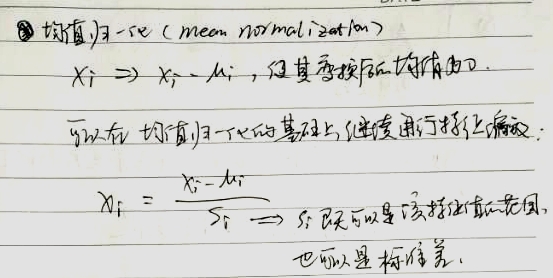 均值归一化 (mean normalization)
xi ⇒ xi - μi, 使其变换后的均值为0.
可以在均值归一化的基础上,继续进行特征缩放:
xi = (xi - μi) / si ⇒ si 既可以是该特征值的范围,
也可以是标准差.